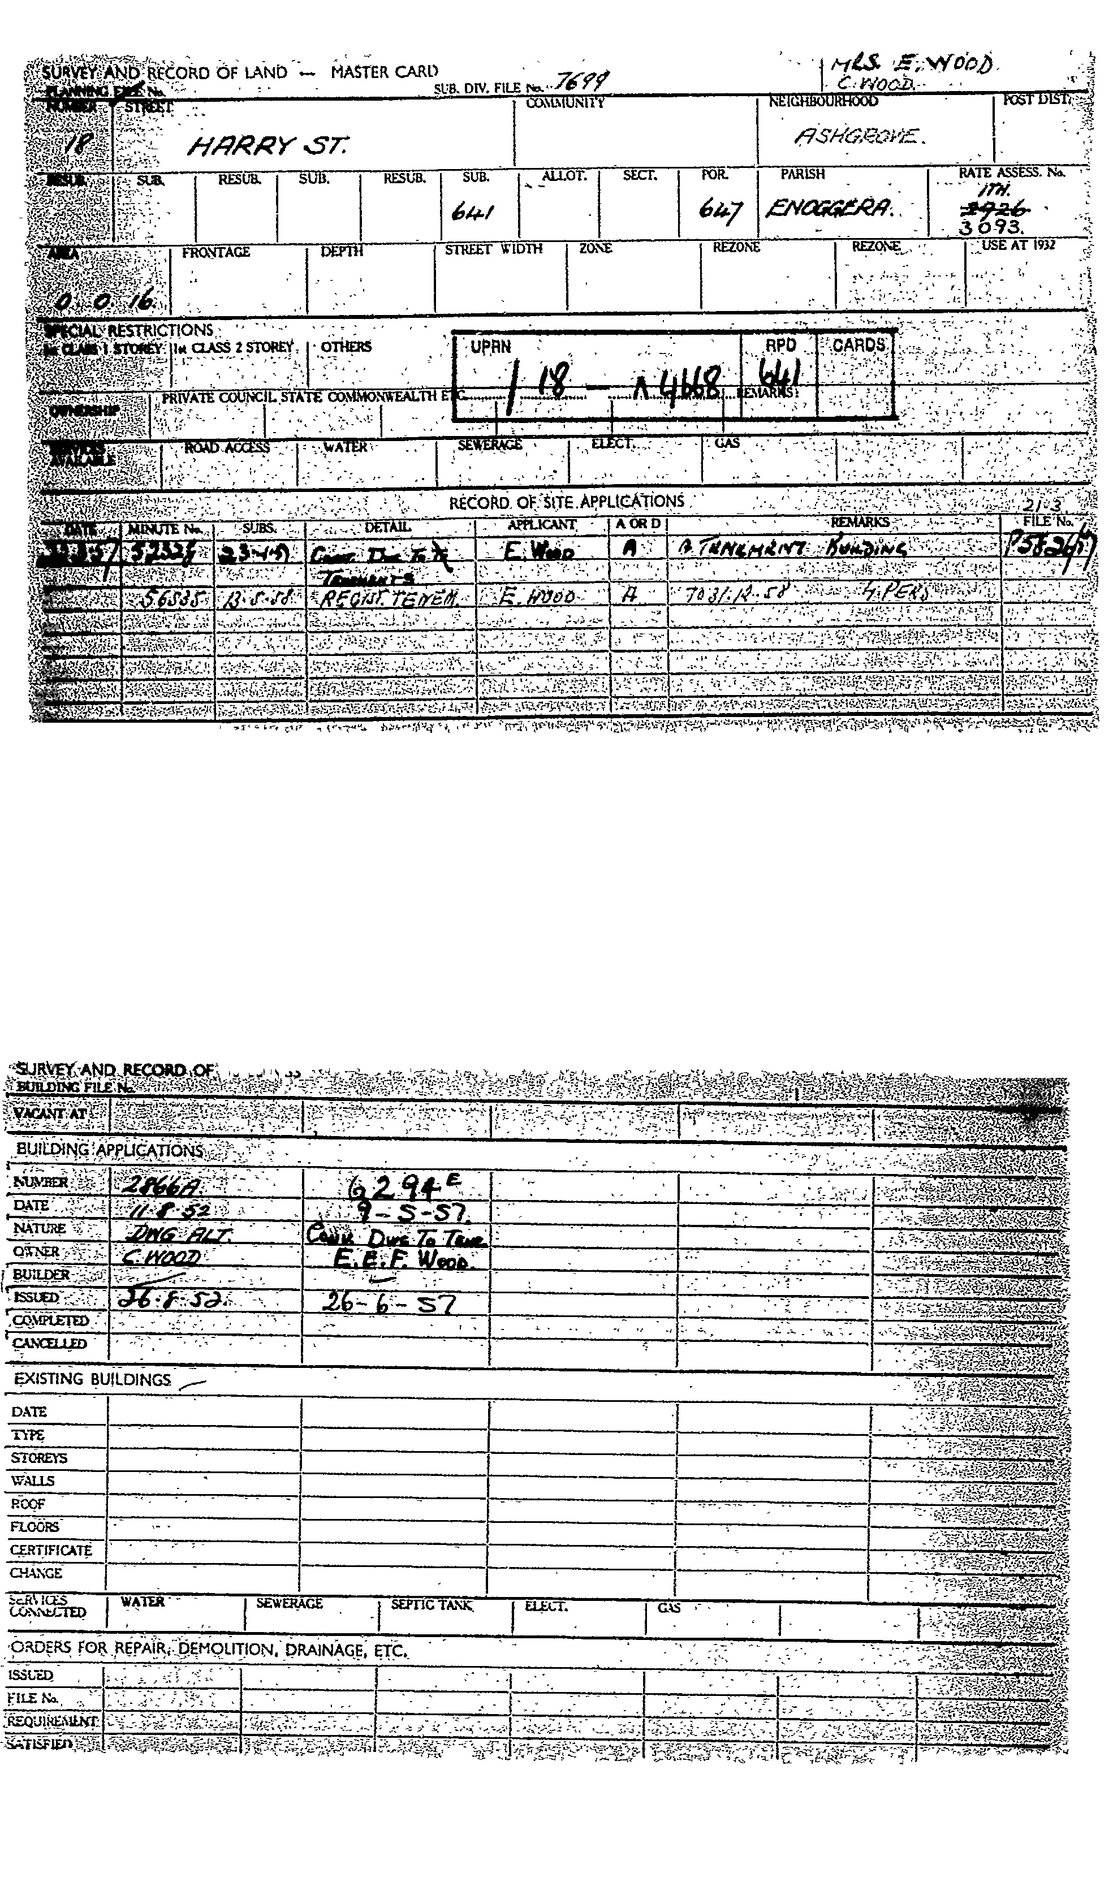 MRS. E. WOOD.
C. WOOD.
SURVEY AND RECORD OF LAND — MASTER CARD
PLANNING FILE No. SUB. DIV. FILE No. 7699
NUMBER STREET COMMUNITY NEIGHBOURHOOD POST DIST.
18 HARRY ST. ASHGROVE.
RESUB. SUB. RESUB. SUB. RESUB. SUB. ALLOT. SECT. POR. PARISH RATE ASSESS. No.
ITH.
641 647 ENOGGERA. 2926
3093.
AREA FRONTAGE DEPTH STREET WIDTH ZONE REZONE REZONE USE AT 1932
0 0 16.
SPECIAL RESTRICTIONS
1st CLASS 1 STOREY 1st CLASS 2 STOREY OTHERS UPRN RPD CARDS
/ 18 — 4668 641
OWNERSHIP PRIVATE COUNCIL STATE COMMONWEALTH ETC. REMARKS:
SERVICES AVAILABLE ROAD ACCESS WATER SEWERAGE ELECT. GAS
RECORD OF SITE APPLICATIONS
21-3
DATE MINUTE No. SUBS. DETAIL APPLICANT A OR D REMARKS FILE No.
E. WOOD A TENEMENT BUILDING
TENEMENTS
56535 13-5-58 REGIST. TENEM. E. WOOD A 31.12.58 4 PERS
SURVEY AND RECORD OF
BUILDING FILE No.
VACANT AT
BUILDING APPLICATIONS
NUMBER 2866A 6294E
DATE 11-8-52 9-5-57.
NATURE DWG ALT. CONV DWG TO TENE
OWNER C. WOOD E.E.F. WOOD.
BUILDER
ISSUED 26-8-52. 26-6-57
COMPLETED
CANCELLED
EXISTING BUILDINGS —
DATE
TYPE
STOREYS
WALLS
ROOF
FLOORS
CERTIFICATE
CHANGE
SERVICES CONNECTED WATER SEWERAGE SEPTIC TANK ELECT. GAS
ORDERS FOR REPAIR, DEMOLITION, DRAINAGE, ETC.
ISSUED
FILE No.
REQUIREMENT
SATISFIED